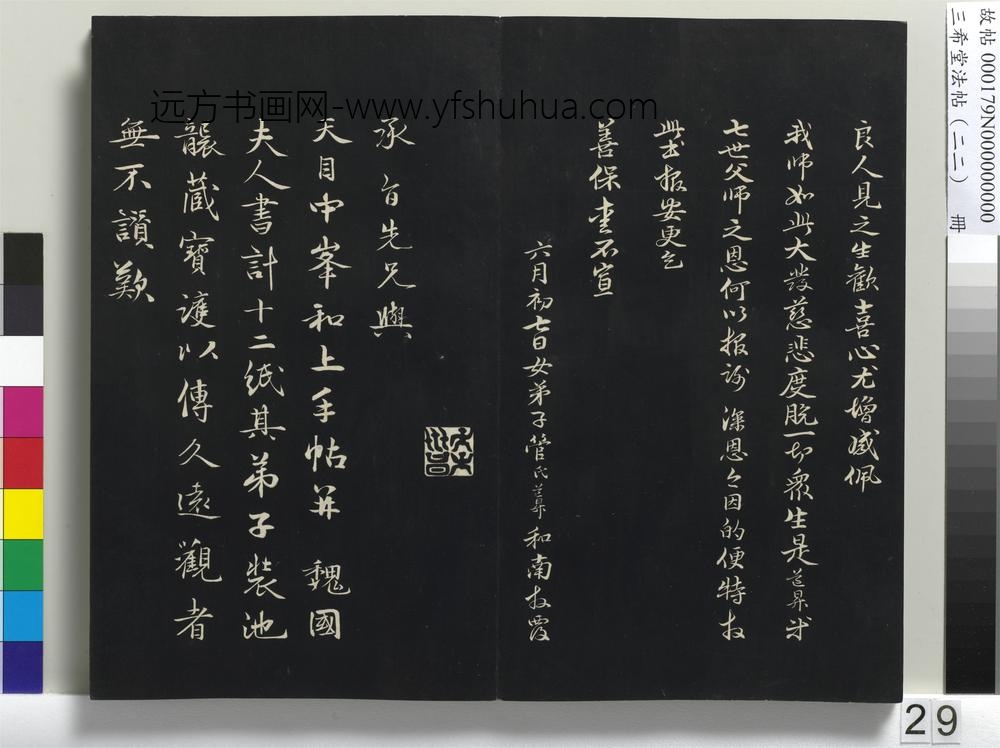 良人見之生歡喜心尤增感佩
我師如此大發慈悲度脫一切衆生是道昇
七世父師之恩何以报谢 深恩今因的便特
此书拜安更乞
善保重不宣
六月初七日女弟子管氏道昇和南拜覆
承旨先兄與
天目中峯和上手帖并 魏國
夫人書計十二紙其弟子裝池
襲藏寶護以傳久遠觀者
無不讚歎
远方书画网-www.yfshuhua.com
故帖 000179N000000000
三希堂法帖（二二） 冊
29